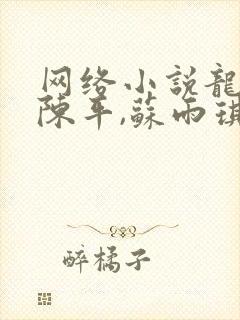 网络小説龍
陳平,蘇雨琪
醉橘子